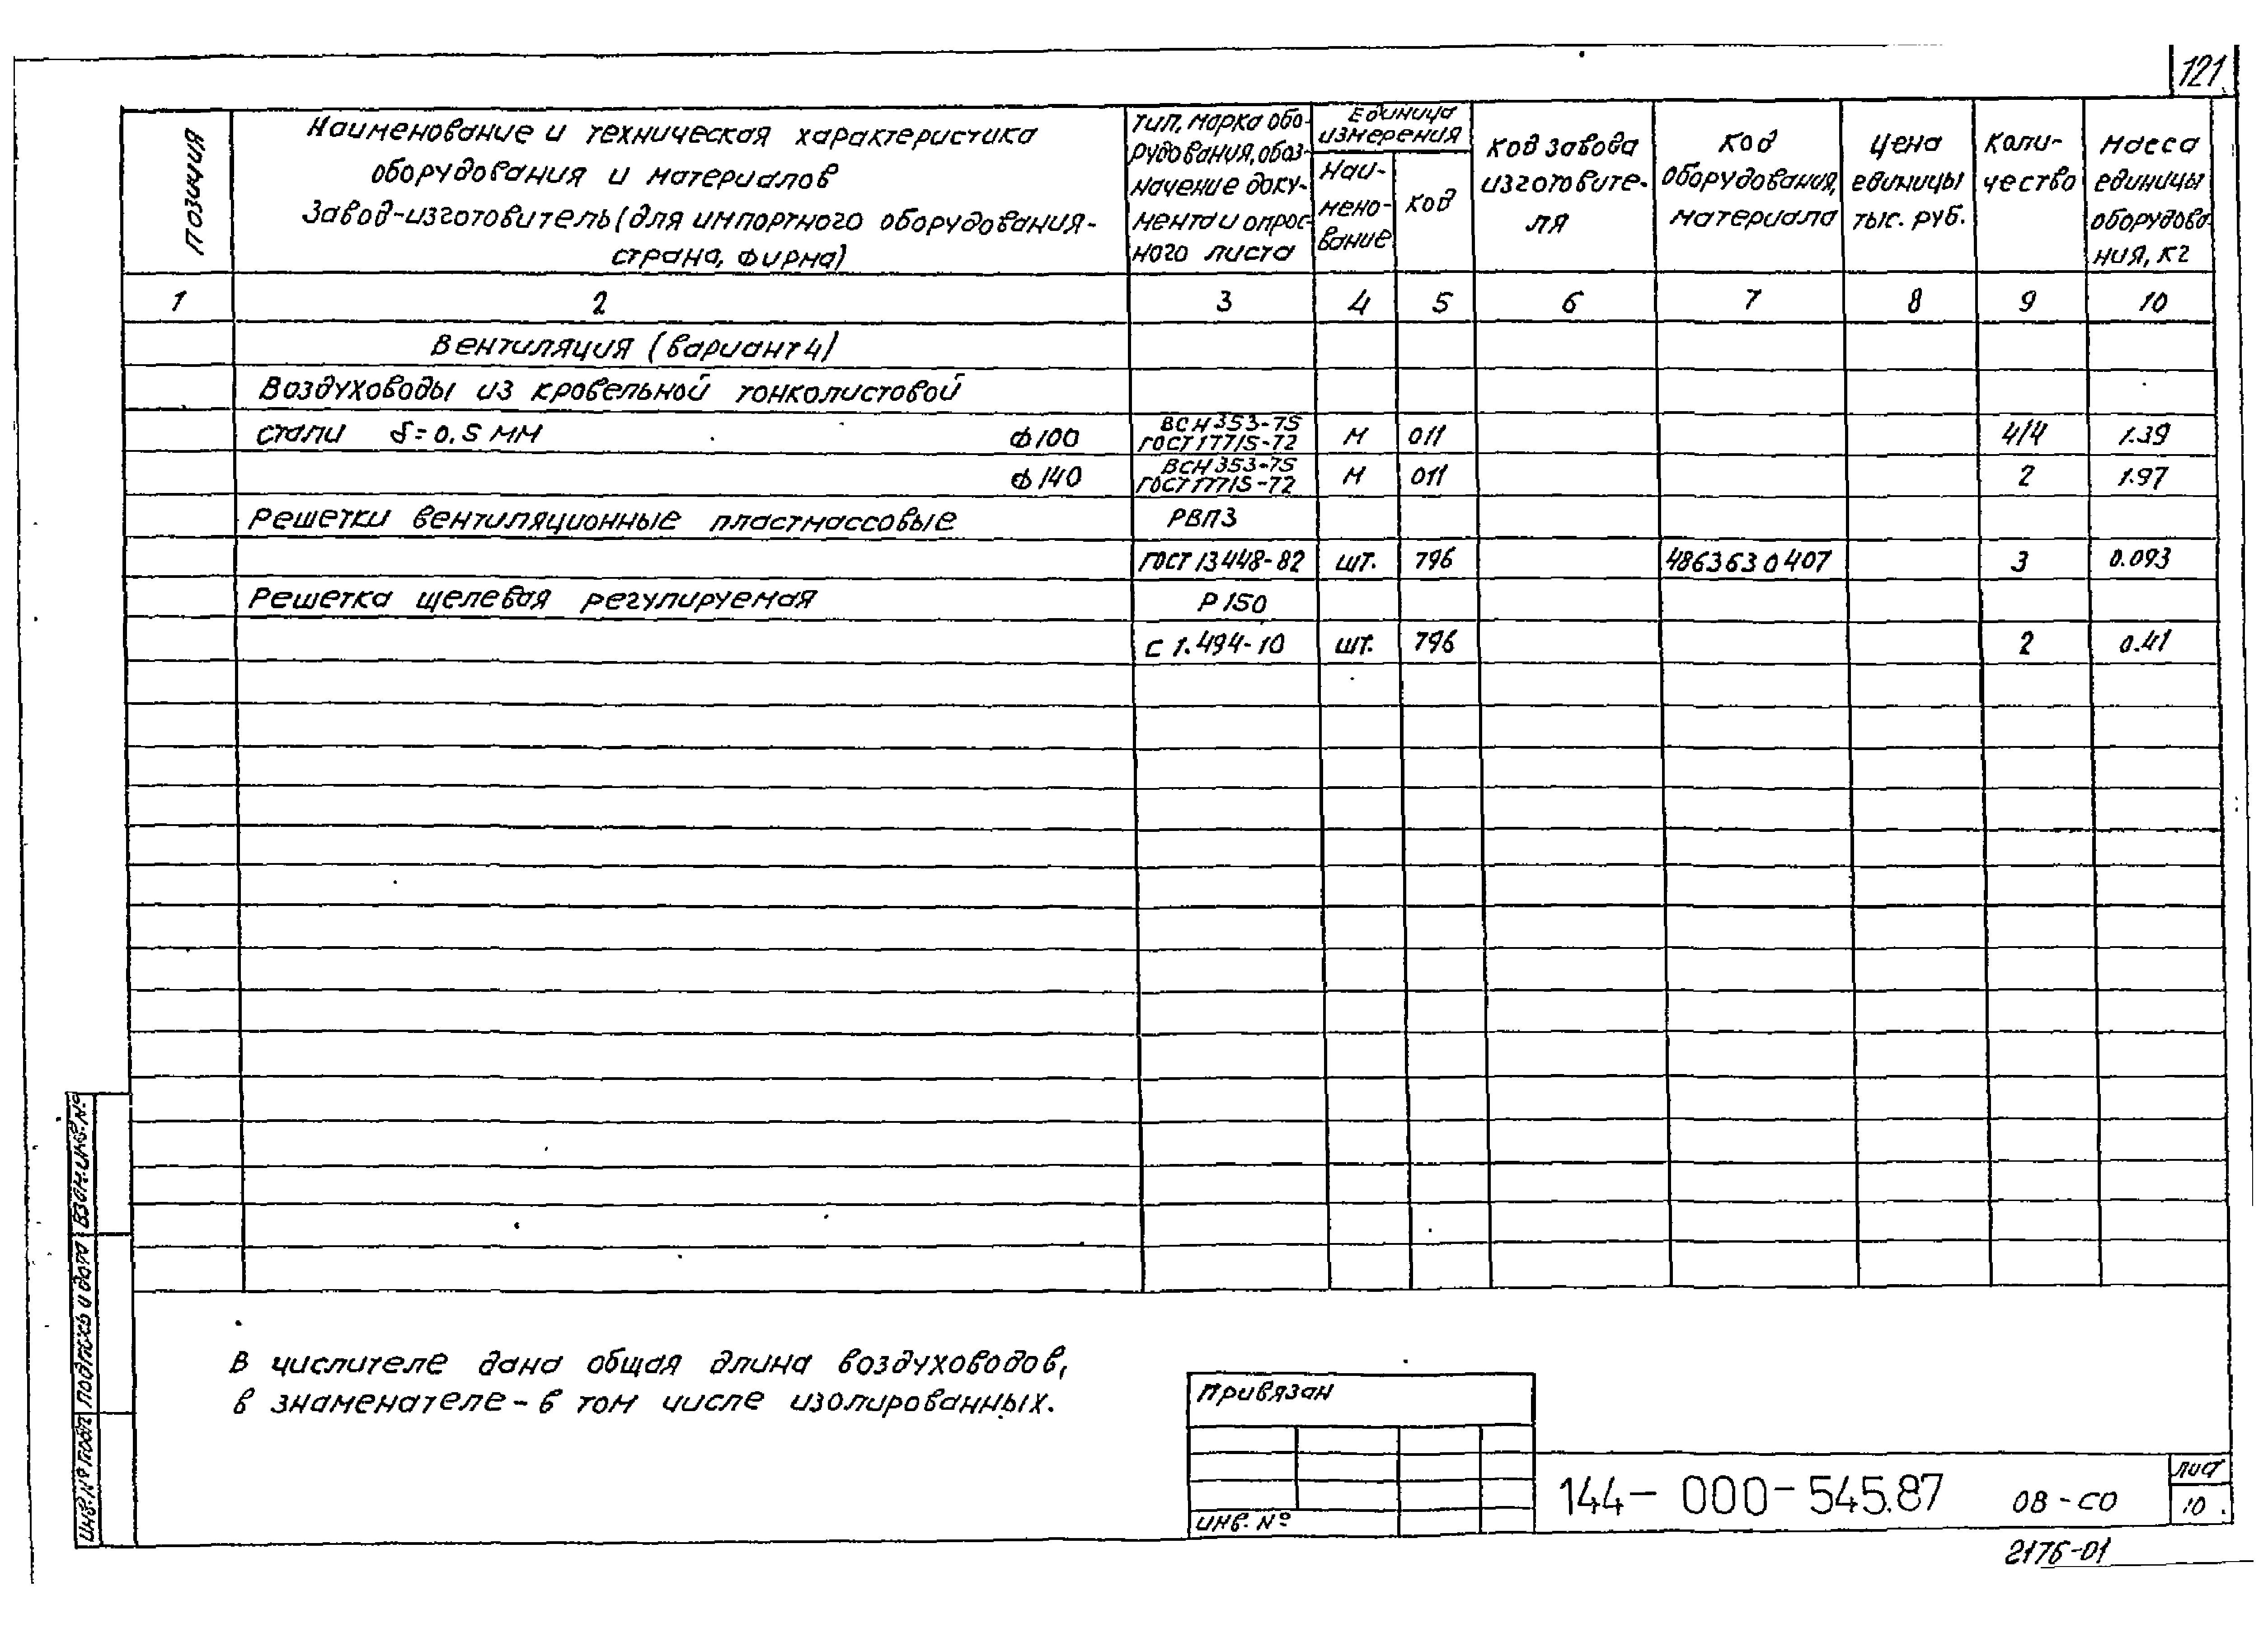 121
Позиция
Наименование и техническая характеристика
оборудования и материалов
Завод-изготовитель (для импортного оборудования-
страна, фирма)
Тип, марка обо-
рудования, обоз-
начение доку-
мента и опрос-
ного листа
Единица
измерения
Наи-
мено-
вание
Код
Код завода
изготовите-
ля
Код
оборудования,
материала
Цена
единицы
тыс. руб.
Коли-
чество
Масса
единицы
оборудова
ния, кг
1 2 3 4 5 6 7 8 9 10
Вентиляция (вариант 4)
Воздуховоды из кровельной тонколистовой
стали δ=0.5 мм ф100 ВСН 353-75 ГОСТ 17715-72 м 011 4/4 1.39
ф140 ВСН 353-75 ГОСТ 17715-72 м 011 2 1.97
Решетки вентиляционные пластмассовые РВП3
ГОСТ 13448-82 шт. 796 4863630407 3 0.093
Решетка щелевая регулируемая Р150
с 1.494-10 шт. 796 2 0.41
В числителе дана общая длина воздуховодов,
в знаменателе - в том числе изолированных.
Привязан
Инв. №
144-000-545.87 ОВ-СО
Лист
10
2176-01
Взам. инв. №
Подпись и дата
Инв. № подл